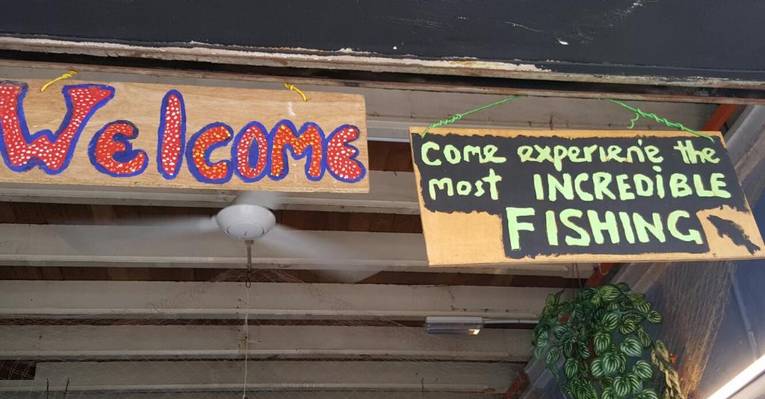 Welcome
come experien'e the
most INCREDIBLE
FISHING